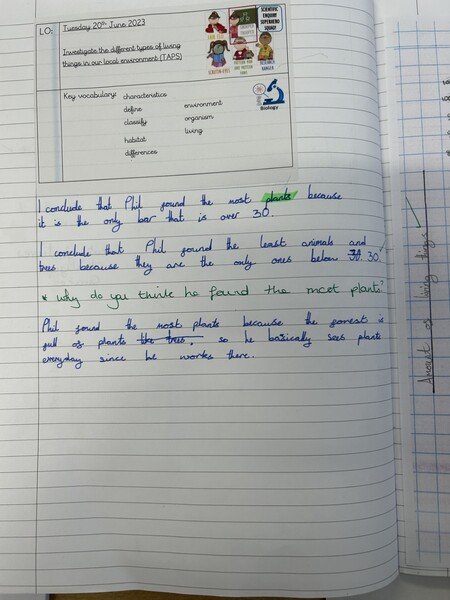 LO:
Tuesday 20th June 2023
Investigate the different types of living
things in our local environment (TAPS)
SCIENTIFIC
ENQUIRY
SUPERHERO
SQUAD!
Key vocabulary:
characteristics
define
classify
habitat
differences
environment
organism
living
Biology
I conclude that Phil found the most plants because
it is the only bar that is over 30.
I conclude that Phil found the least animals and
trees because they are the only ones below 30. 30.
* Why do you think he found the most plants?
Phil found the most plants because the forrest is
full of plants like trees. so he basically sees plants
everyday since he works there.
Amount of living things